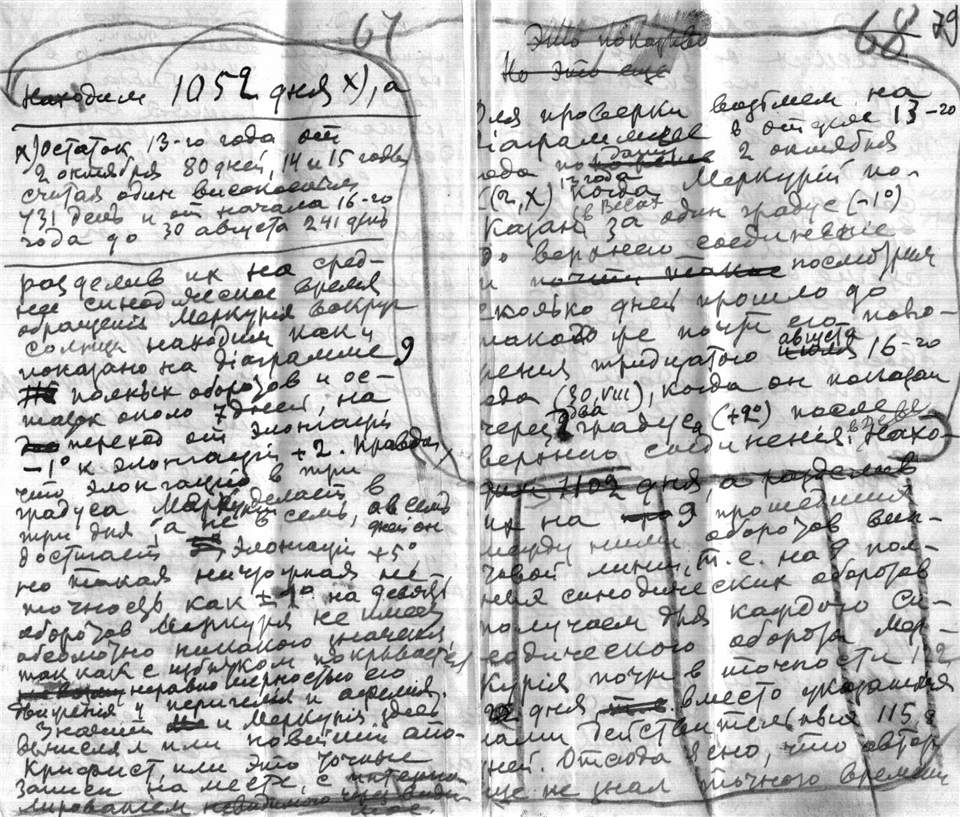 67
Находим 1052 дня х), а
х) Остаток 13-го года от
2 октября 80 дней, 14 и 15 годы
считая один високосный
731 день и от начала 16-го
года до 30 августа 241 день
разделив их на сред-
нее синодическое время
обращенія Меркурія вокруг
солнца находим как и
показано на діаграмме 9
полных оборотов и ос-
таток около 7 дней, на
переход от элонгаціи
-1° к элонгаціи +2. Правда,
что элонгацію в три
градуса Меркурий делает в
три дня, а не в семь, а в семь
дней он
достигает элонгаціи +5°
но такая ничтожная не-
точность как ±1° на девять
оборотов Меркурія не имеет
абсолютно никакого значенія,
так как с избытком покрывается
неравномерностью его
движенія у перигелия и афелия.
и Меркурія здесь
вычислял или новейший апо-
крифист, или это точные
записи на месте, с интерпо-
лированием
68 79
Это показано
Но это еще
Для проверки возьмем на
діаграмме в отделе 13-го
года дату 2 октября
13 года
(2, X) когда Меркурий по-
в Весах
казан за один градус (-1°)
до верхнего соединенія
и почти посмотрим
сколько дней прошло до
такого же почти его поло-
августа
женія тридцатого июля 16-го
года (30, VIII), когда он показан
два
через 2 градуса (+2°) после
верхнего соединенія. Нахо-
1102 дня, а разделив
их на 9 прошедших
между ними оборотов
линии, т. е. на 9 пол-
ных синодических оборотов
получаем для каждого си-
нодического оборота Мер-
курія почти в точности 122
дня вместо указанных
нами действительных 115,8
дней. Отсюда ясно, что автор
еще не знал точного времени